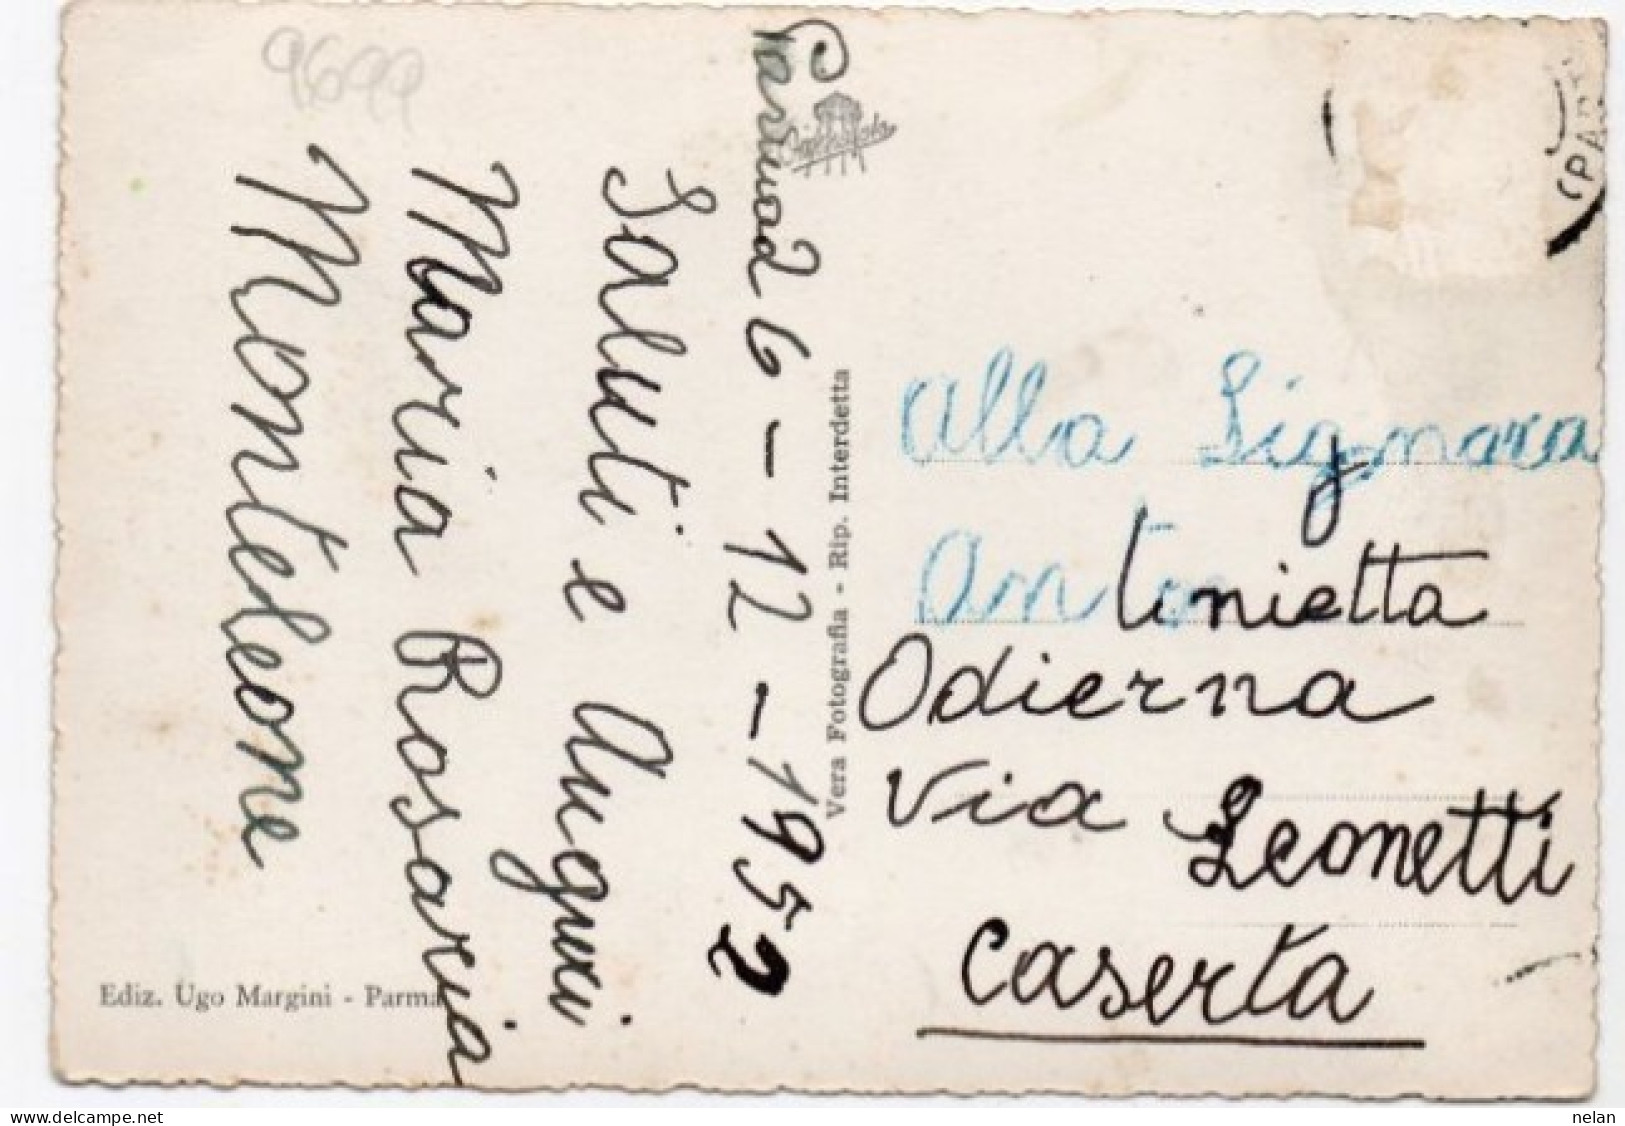 9699
Parma 26-12-1952
Saluti e Auguri
Maria Rosaria
Monteleone
Ediz. Ugo Margini - Parma
Vera Fotografia - Rip. Interdetta
(PAR
Alla Signora
Antonietta
Odierna
Via Leonetti
Caserta
delcampe.net
nelan